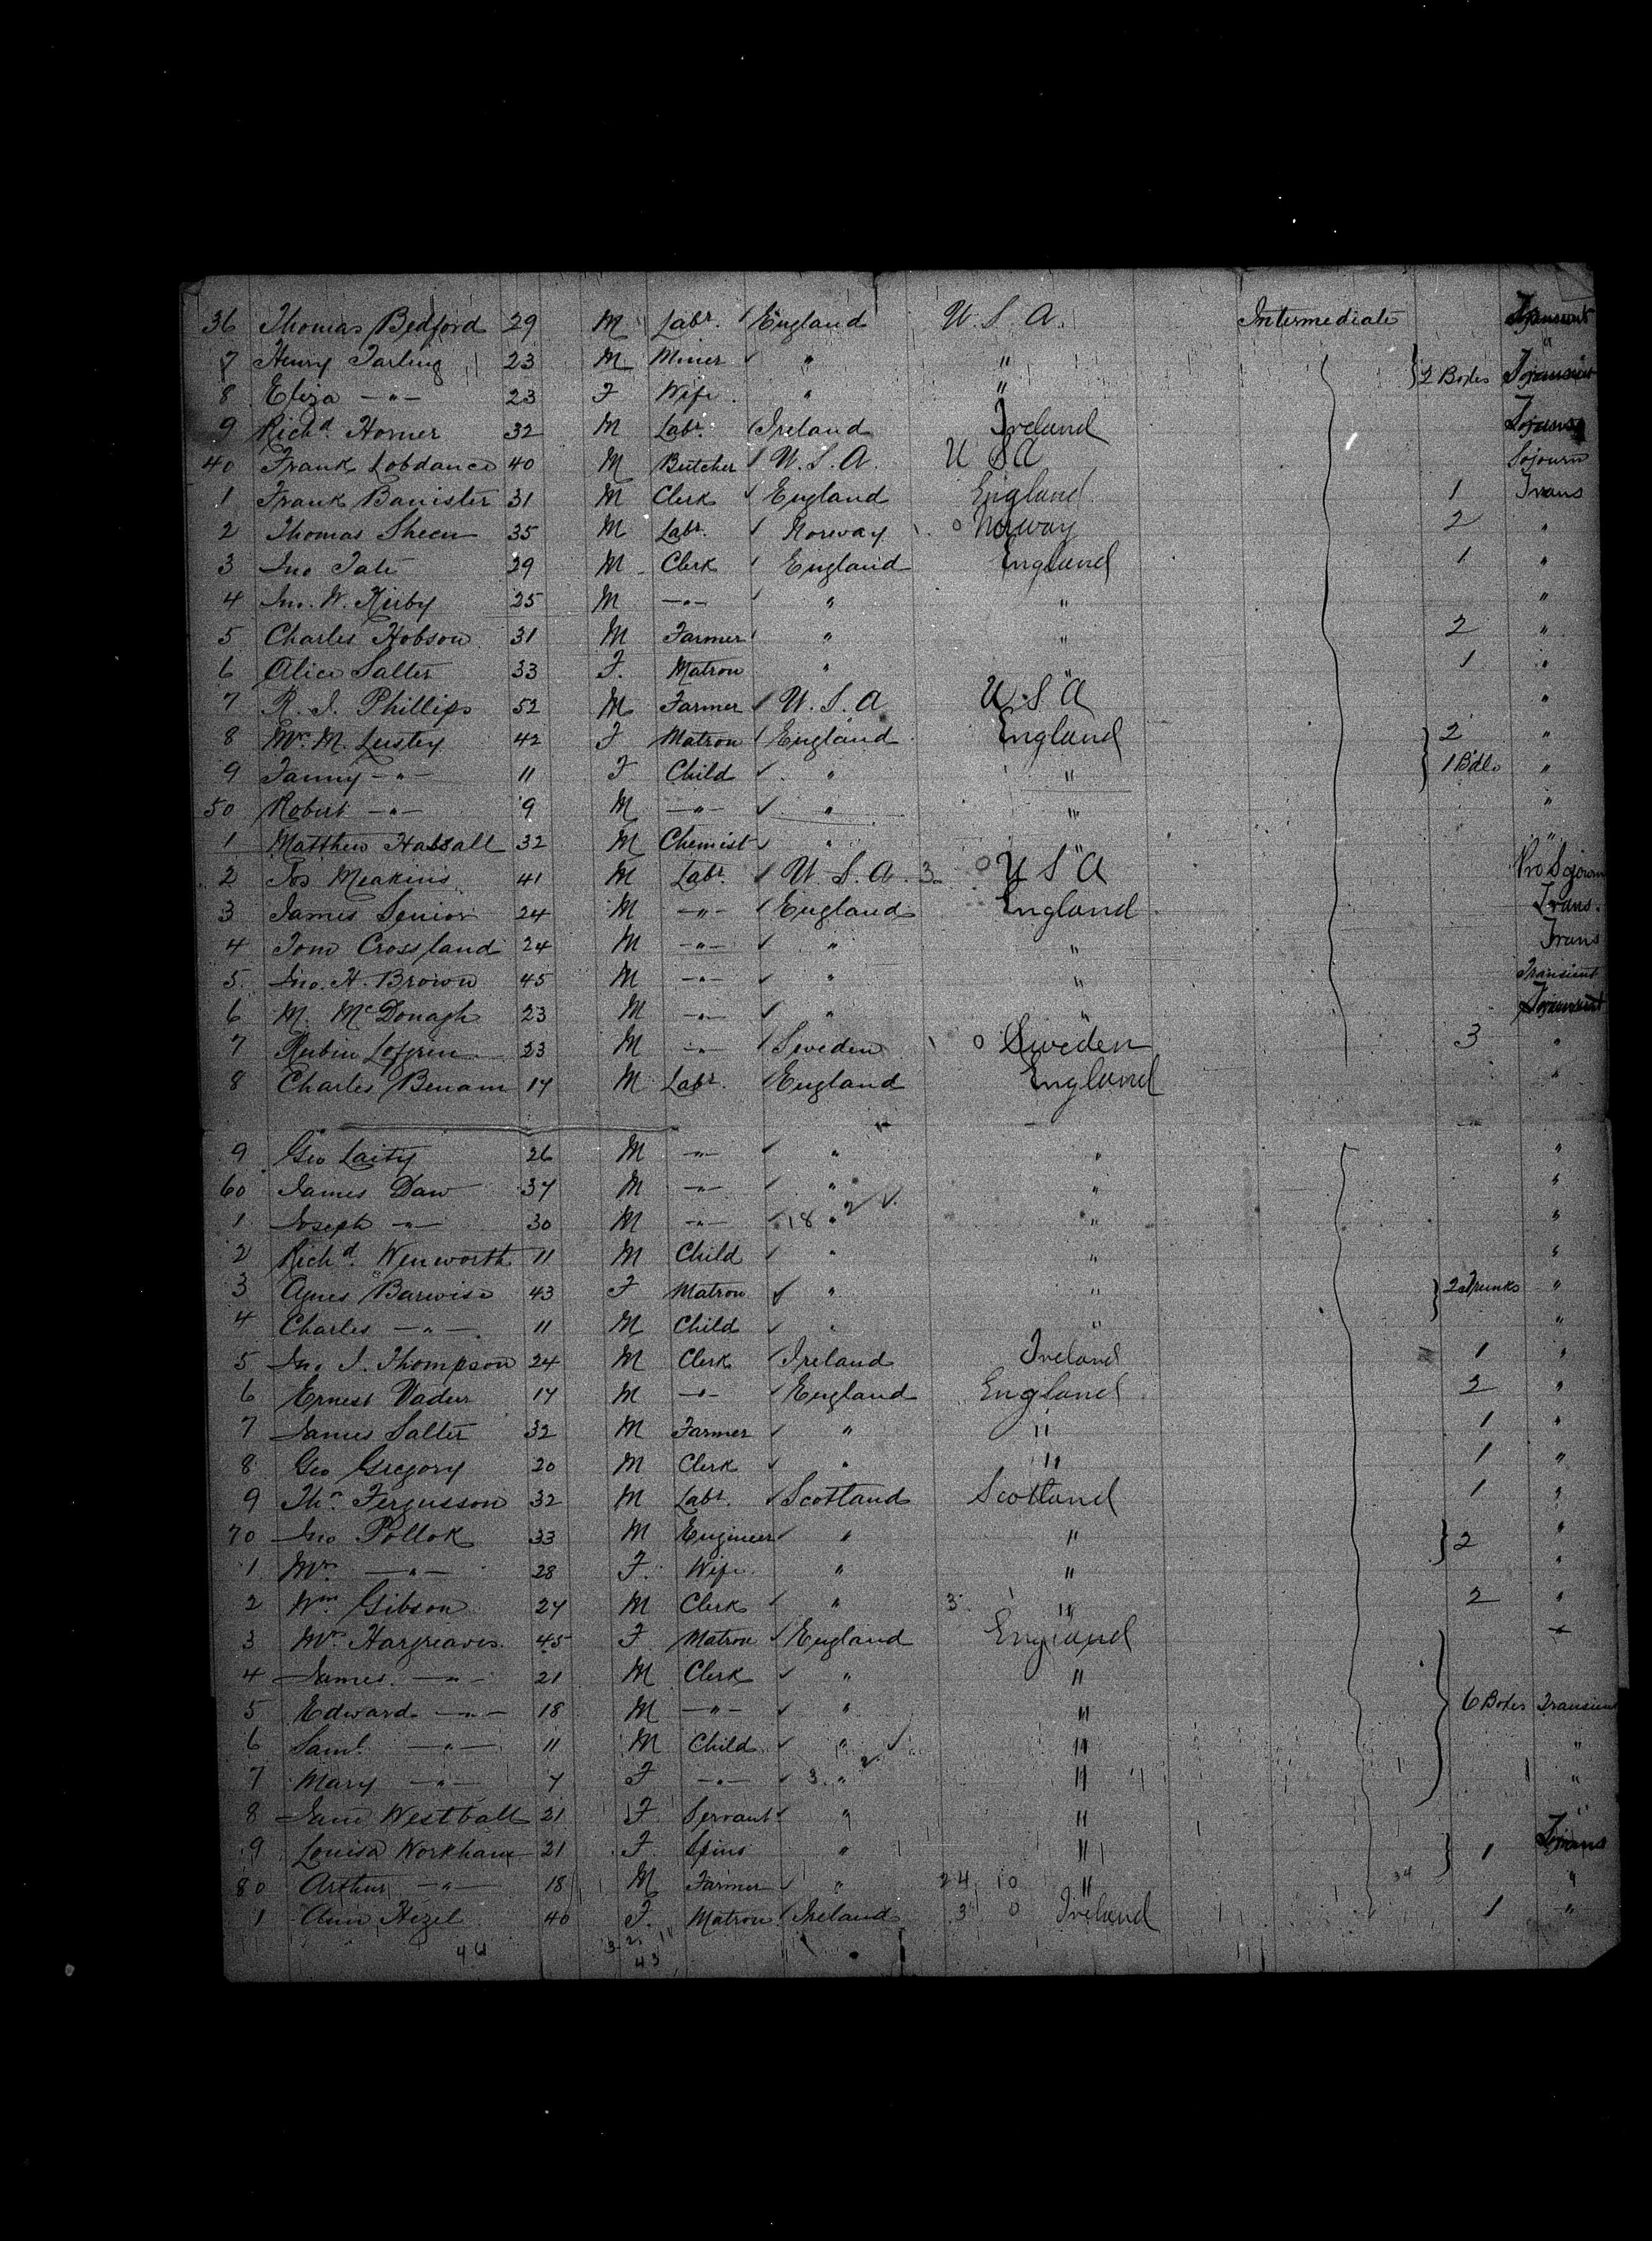 36 Thomas Bedford 29 M Labr. England U. S. A. Intermediate
7 Henry Tarling 23 M Miner " " 2 Boxes
8 Eliza —"— 23 F Wife " "
9 Richd. Horner 32 M Labr. Ireland Ireland
40 Frank Lobdance 40 M Butcher U. S. A. U S A Sojourn
1 Frank Banister 31 M Clerk England England 1 Trans
2 Thomas Sheen 35 M Labr. Norway o Norway 2 "
3 Jno Tate 29 M Clerk England England 1 "
4 Jno. W. Kirby 25 M —"— " " "
5 Charles Hobson 31 M Farmer " " 2 "
6 Alice Salter 33 F. Matron " " 1 "
7 R. J. Phillips 52 M Farmer U. S. A U S A "
8 Mrs. M. Lustey 42 F Matron England England 2 "
9 Fanny —"— 11 F Child " " 1 Bdle "
50 Robert —"— 9 M —"— " " "
1 Matthew Hassall 32 M Chemist " " "
2 Jos Meakins 41 M Labr. U. S. A. 3 o U S A Pro Sojourn
3 James Senior 24 M —"— England England Trans.
4 Tom Crossland 24 M —"— " " Trans
5 Jno. H. Brown 45 M —"— " " Transient
6 M. McDonagh 23 M —"— " "
7 Rubin Lofgren 23 M —"— Sweden o Sweden 3 "
8 Charles Benam 17 M Labr. England England "
9 Geo Laity 26 M —"— " " "
60 James Daw 37 M —"— " " "
1 Joseph —"— 30 M —"— 18 " " "
2 Richd. Wenworth 11 M Child " " "
3 Agnes Barwise 43 F Matron " " 2 Trunks "
4 Charles —"— 11 M Child " " "
5 Jno J. Thompson 24 M Clerk Ireland Ireland 1 "
6 Ernest Vadur 17 M —"— England England 2 "
7 James Salter 32 M Farmer " " 1 "
8 Geo Gregory 20 M Clerk " " 1 "
9 Ths. Fergusson 32 M Labr. Scotland Scotland 1 "
70 Jno Pollok 33 M Engineer " " 2 "
1 Mrs. —"— 28 F. Wife " " "
2 Wm. Gibson 27 M Clerk " 3 " 2 "
3 Mrs. Hargreaves. 45 F Matron England England "
4 James. —"— 21 M Clerk " "
5 Edward —"— 18 M —"— " " 6 Boxes Transient
6 Saml. —"— 11 M Child " " "
7 Mary —"— 7 F —"— 3. " " "
8 Jane Westball 21 F Servant " " "
9 Louisa Workham 21 F Spins " " 1 Trans
80 Arthur —"— 18 M Farmer " 24 10 " 34 "
1 Ann Hezel 40 F. Matron Ireland 3 0 Ireland 1 "
43